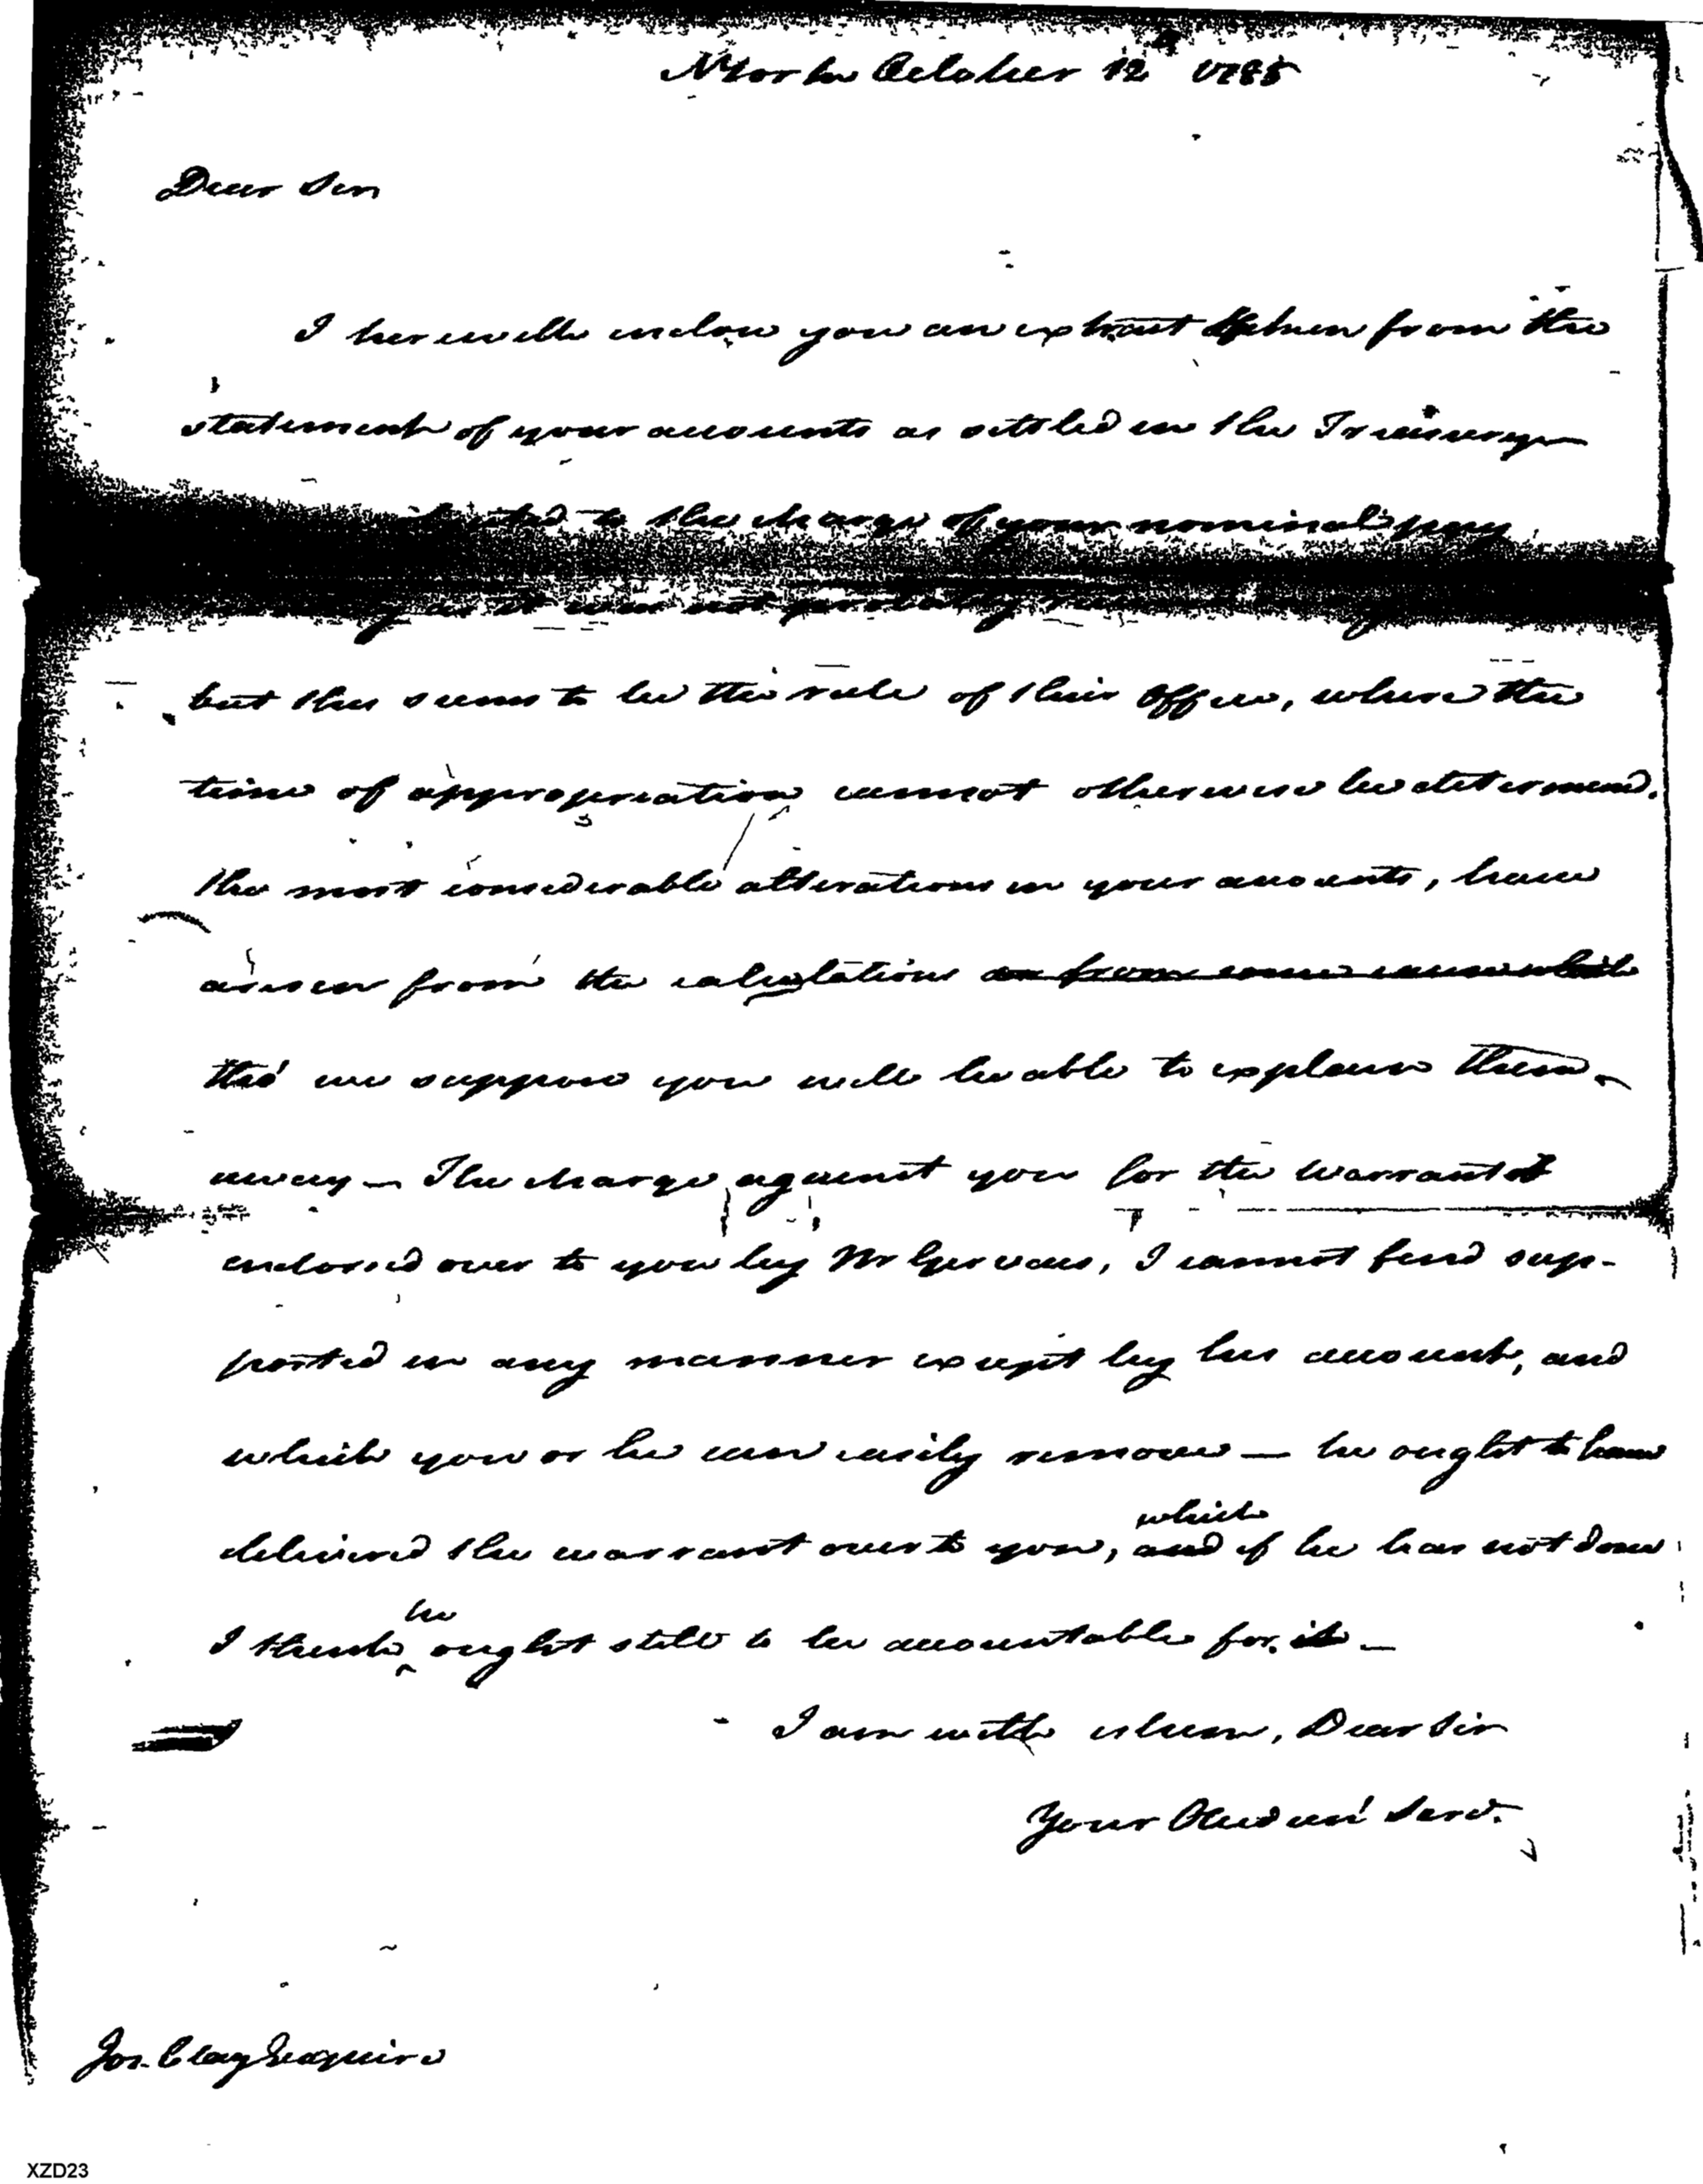 NYork October 12 1785
Dear Sir
I herewith inclose you an extract taken from the
statement of your accounts as settled in the Treasury
to the charge of your nominal pay
as it was not probably
but this seems to be the rule of their Office, where the
time of appropriation cannot otherwise be determined.
the most considerable alterations in your accounts, have
arisen from the calculations as from some cause which
tho' we suppose you will be able to explain them
away — The charge against you for the Warrant
endorsed over to you by Mr Gervais, I cannot find sup-
ported in any manner except by his account, and
which you or he can easily remove — he ought to have
which
delivered the warrant over to you, and if he has not done
he
I think ought still to be accountable for it —
I am with esteem, Dear Sir
Your Servt.
Jos. Clay Esquire
XZD23